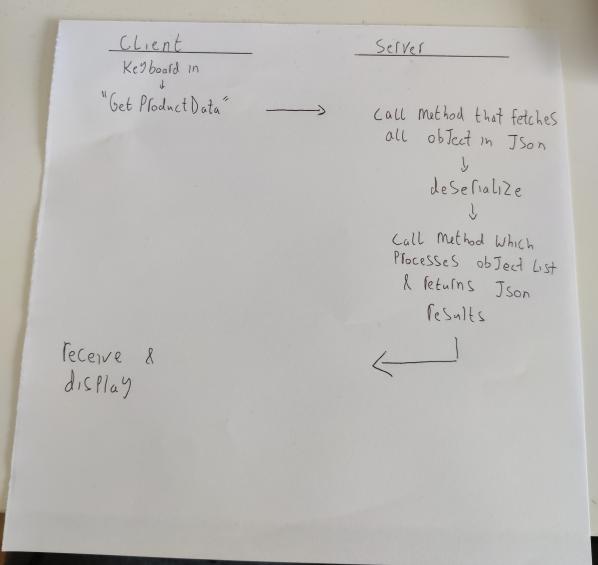 Client
Keyboard in
↓
"Get ProductData"
→
receive &
display
Server
Call Method that fetches
all object in Json
↓
deserialize
↓
Call Method which
Processes object List
& returns Json
results